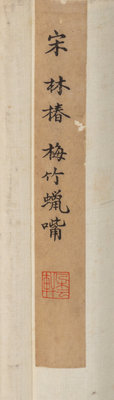 宋 林椿 梅竹蝋嘴